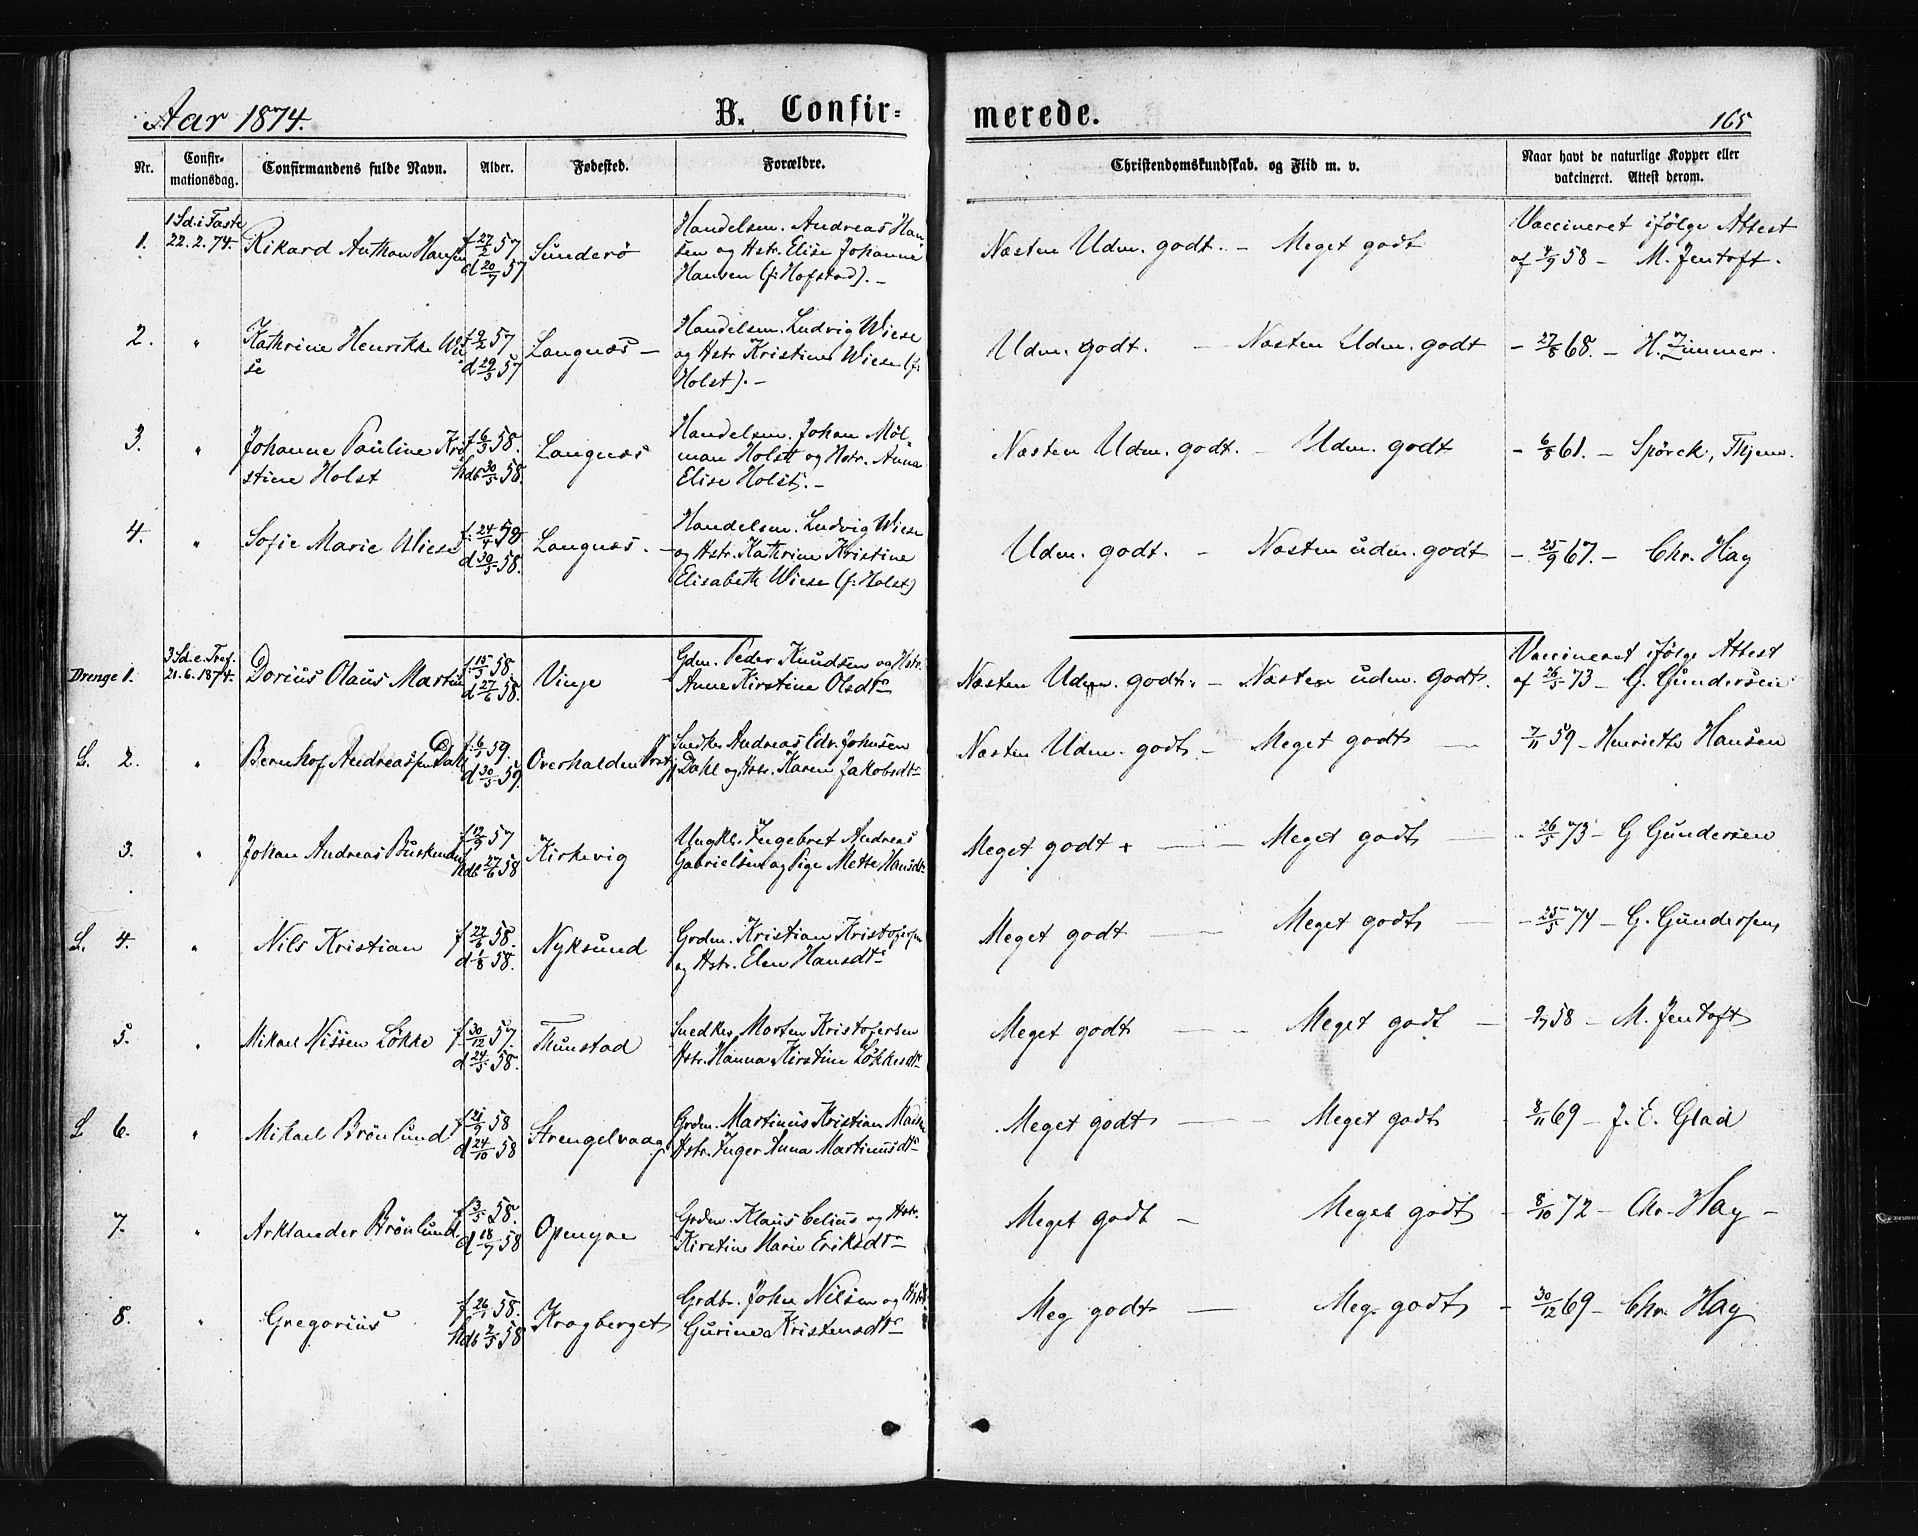 Aar 1874. B. Confirmerede. 165
Nr. Confirmationsdag. Confirmandens fulde Navn. Alder. Fødested. Forældre. Christendomskundskab. og Flid m. v. Naar havt de naturlige Kopper eller vakcineret. Attest derom.
1. 1 Sd. i Faste 22.2.74. Rikard Anthon Hansen f 27/2 57 d 20/7 57 Sunderö Handelsm. Andreas Hansen og Hstr. Elise Johanne Hansen (f: Hofstad). – Næsten Udm. godt. – Meget godt Vaccineret ifölge Attest af 9/9 58 – M. Jentoft.
2. " Kathrine Henrikke Wiese f 9/2 57 d 29/5 57 Langnæs – Handelsm. Ludvig Wiese og Hstr Kristine Wiese (f: Holst). – Udm. godt. – Næsten Udm. godt – 27/8 68. – H. Zimmer.
3. " Johanne Pauline Kristine Holst f 6/3 58. hdb 30/5 58. Langnæs Handelsm. Johan Mölman Holst og Hstr. Anna Elise Holst. – Næsten Udm. godt. – Udm. godt – 6/8 61. – Spörck, Thjem.
4. " Sofie Marie Wiese f. 24/4 58 d 30/5 58. Langnæs. – Handelsm. Ludvig Wiese og Hstr. Kathrine Kristine Elisabeth Wiese (f: Holst) Udm. godt. – Næsten udm. godt – 25/9 67. – Chr. Hay
Drenge 1. 3 Sd. e. Tref. 21.6.1874. Dorius Olaus Martin f. 15/3 58. d 27/6 58. Vinje Gdm. Peder Knudsen og Hstr. Anne Kirstine Olsdtr Næsten Udm. godt. – Næsten udm. godt. Vaccineret ifölge Attest af 26/5 73 – G. Gundersen
L. 2. " Bernhof Andreassen Dahl f. 6/1 59. d 30/5 59. Overhalden Prstgj Snedker Andreas Edv. Johnsen Dahl og Hstr. Karen Jakobsdtr Næsten Udm. godt – Meget godt – 7/11 59 – Henriette Hansen
3. " Johan Andreas f 12/9 57 hdb 27/6 58 Kirkevig Ungkl. Ingebret Andreas Gabrielsen og Pige Mette Hansdtr Meget godt + – Meget godt – 26/5 73 – G Gundersen
L. 4. " Nils Kristian f 22/6 58. d 1/8 58. Nyksund Grdm. Kristian Kristofersen og Hstr. Elen Hansdtr Meget godt – Meget godt – 25/5 74 – G. Gundersen
5. " Mikael Nissen Lökke f 30/12 57. d 24/5 58. Thunstad Snedker Morten Kristofersen Hstr. Hanna Kirstine Lökkesdtr Meget godt – Meget godt – 58 – M. Jentoft
L 6. " Mikael Brönlund f 21/9 58 d 24/10 58 Strengelvaag Grdm. Martinus Kristian Madsen Hstr. Inger Anna Martinusdtr Meget godt – Meget godt – 8/11 69 – J. E. Glad
7. " Arklander Brönlund f 3/5 58. d 18/7 58 Openyne Grdm. Klaus Celius og Hstr. Kirstine Marie Eriksdtr Meget godt – Meget godt – 8/10 72 – Chr. Hay –
8. " Gregorius f 26/1 58. hdb 2/5 58 Kragberget Grdbr. John Nilsen og Hstr Gurine Kristensdtr Meg godt – Meg. godt – 30/12 69 – Chr. Hay